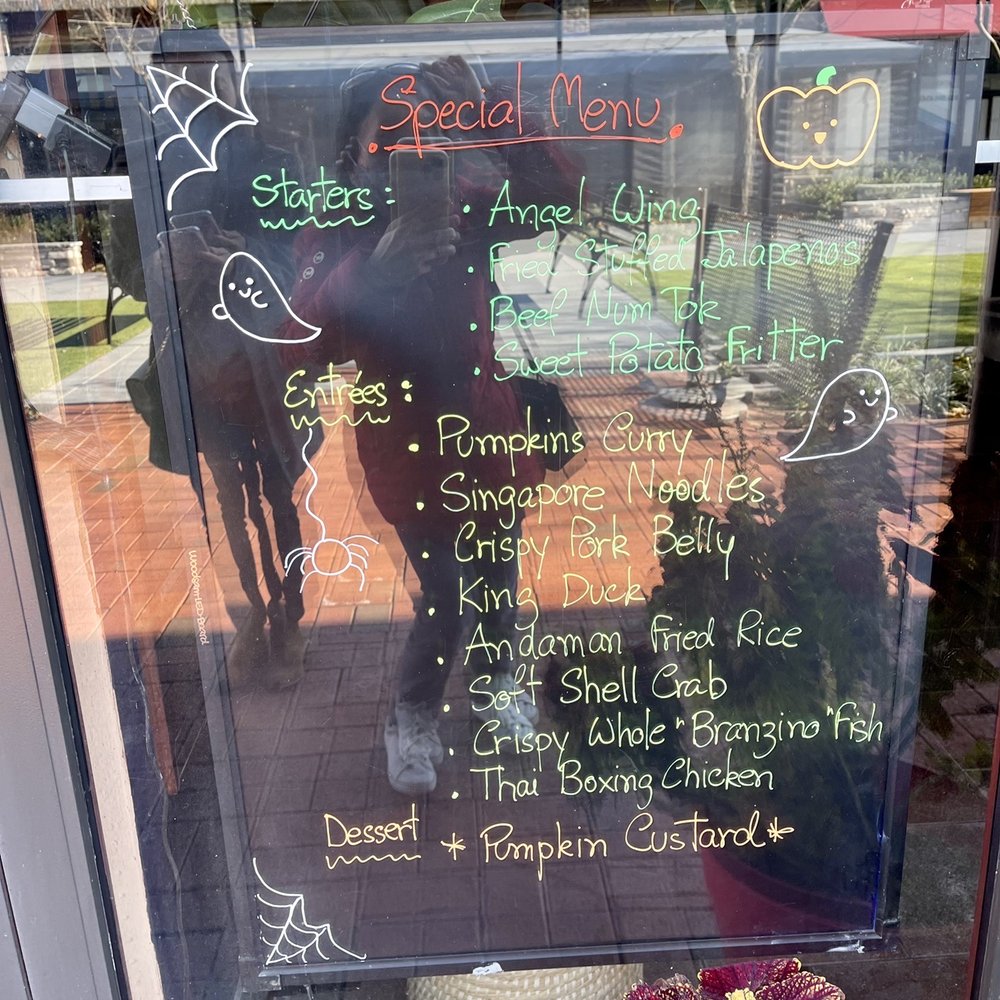 Special Menu
Starters :
• Angel Wing
• Fried Stuffed Jalapenos
• Beef Num Tok
• Sweet Potato Fritter
Entrées :
• Pumpkins Curry
• Singapore Noodles
• Crispy Pork Belly
• King Duck
• Andaman Fried Rice
• Soft Shell Crab
• Crispy Whole "Branzino" Fish
• Thai Boxing Chicken
Dessert * Pumpkin Custard *